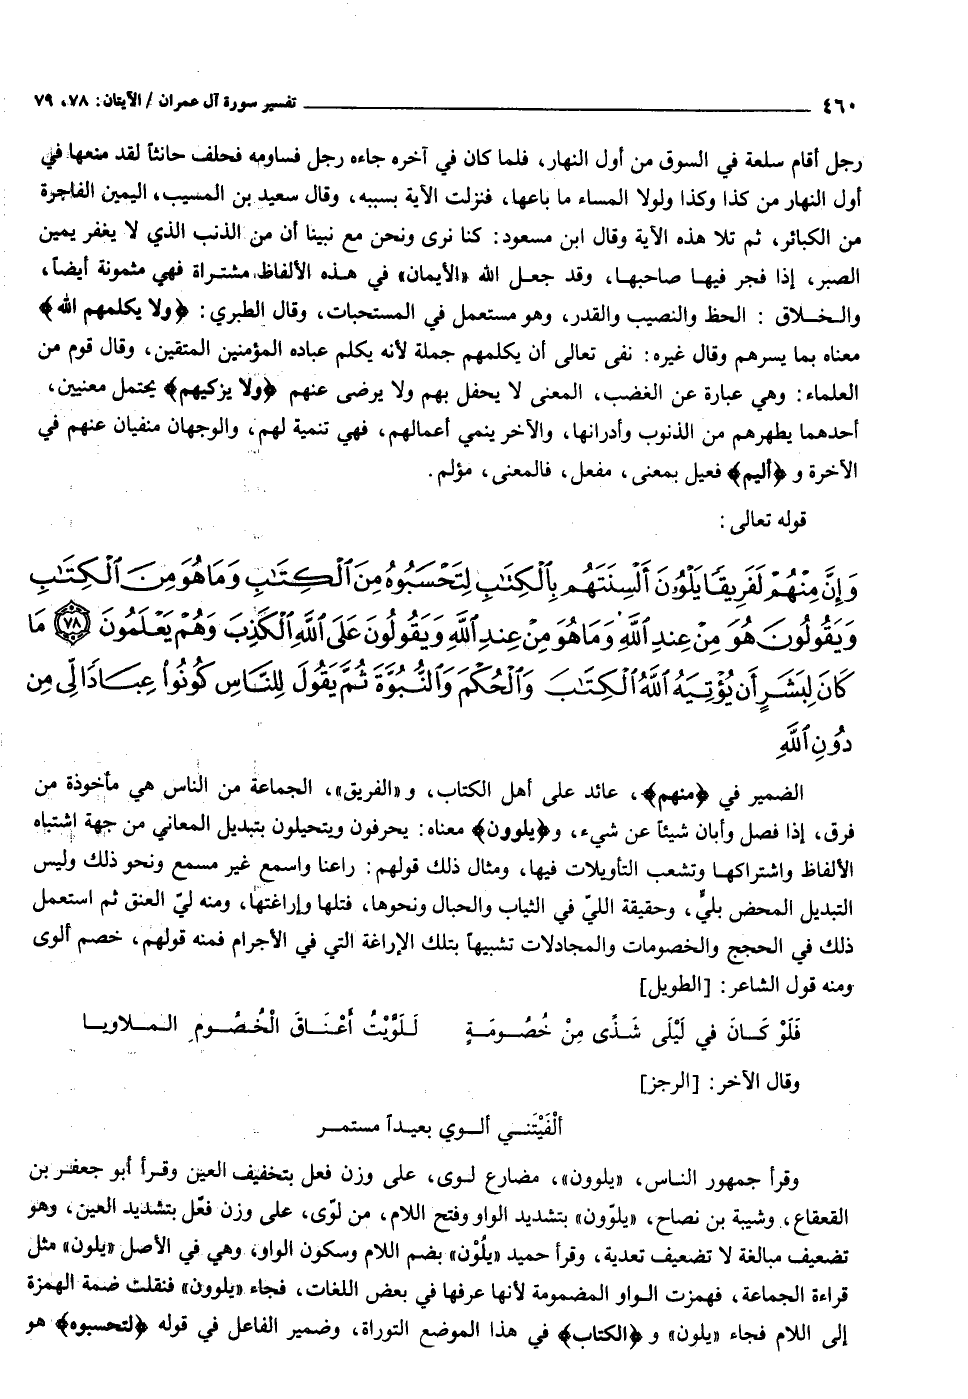 ٤٦٠ ــــــــــــــــــــــــــــــــــــــــ تفسير سورة آل عمران / الآيتان: ٧٨، ٧٩
رجل أقام سلعة في السوق من أول النهار، فلما كان في آخره جاءه رجل فساومه فحلف حانثاً لقد منعها في
أول النهار من كذا وكذا ولولا المساء ما باعها، فنزلت الآية بسببه، وقال سعيد بن المسيب، اليمين الفاجرة
من الكبائر، ثم تلا هذه الآية وقال ابن مسعود: كنا نرى ونحن مع نبينا أن من الذنب الذي لا يغفر يمين
الصبر، إذا فجر فيها صاحبها، وقد جعل الله «الأيمان» في هذه الألفاظ مشتراة فهي مثمونة أيضاً،
والخلاق : الحظ والنصيب والقدر، وهو مستعمل في المستحبات، وقال الطبري: ﴿ولا يكلمهم الله﴾
معناه بما يسرهم وقال غيره: نفى تعالى أن يكلمهم جملة لأنه يكلم عباده المؤمنين المتقين، وقال قوم من
العلماء: وهي عبارة عن الغضب، المعنى لا يحفل بهم ولا يرضى عنهم ﴿ولا يزكيهم﴾ يحتمل معنيين،
أحدهما يطهرهم من الذنوب وأدرانها، والآخر ينمي أعمالهم، فهي تنمية لهم، والوجهان منفيان عنهم في
الآخرة و ﴿أليم﴾ فعيل بمعنى، مفعل، فالمعنى، مؤلم.
قوله تعالى:
وَإِنَّ مِنْهُمْ لَفَرِيقًا يَلْوُونَ أَلْسِنَتَهُم بِالْكِتَابِ لِتَحْسَبُوهُ مِنَ الْكِتَابِ وَمَا هُوَ مِنَ الْكِتَابِ
وَيَقُولُونَ هُوَ مِنْ عِندِ اللَّهِ وَمَا هُوَ مِنْ عِندِ اللَّهِ وَيَقُولُونَ عَلَى اللَّهِ الْكَذِبَ وَهُمْ يَعْلَمُونَ ﴿٧٨﴾ مَا
كَانَ لِبَشَرٍ أَن يُؤْتِيَهُ اللَّهُ الْكِتَابَ وَالْحُكْمَ وَالنُّبُوَّةَ ثُمَّ يَقُولَ لِلنَّاسِ كُونُوا عِبَادًا لِّي مِن
دُونِ اللَّهِ
الضمير في ﴿منهم﴾، عائد على أهل الكتاب، و «الفريق»، الجماعة من الناس هي مأخوذة من
فرق، إذا فصل وأبان شيئاً عن شيء، و﴿يلوون﴾ معناه: يحرفون ويتحيلون بتبديل المعاني من جهة اشتباه
الألفاظ واشتراكها وتشعب التأويلات فيها، ومثال ذلك قولهم: راعنا واسمع غير مسمع ونحو ذلك وليس
التبديل المحض بليٍّ، وحقيقة الليّ في الثياب والحبال ونحوها، فتلها وإراغتها، ومنه ليّ العنق ثم استعمل
ذلك في الحجج والخصومات والمجادلات تشبيهاً بتلك الإراغة التي في الأجرام فمنه قولهم، خصم ألوى
ومنه قول الشاعر: [الطويل]
فَلَوْ كَانَ في لَيْلَى شَذًى مِنْ خُصُومَةٍ لَلَوَّيْتُ أَعْنَاقَ الْخُصُومِ الملاويا
وقال الآخر: [الرجز]
ألْفَيْتَني ألوي بعيداً مستمر
وقرأ جمهور الناس، «يلوون»، مضارع لوى، على وزن فعل بتخفيف العين وقرأ أبو جعفر بن
القعقاع، وشيبة بن نصاح، «يلوّون» بتشديد الواو وفتح اللام، من لوّى، على وزن فعّل بتشديد العين، وهو
تضعيف مبالغة لا تضعيف تعدية، وقرأ حميد «يلُوْن» بضم اللام وسكون الواو، وهي في الأصل «يلون» مثل
قراءة الجماعة، فهمزت الواو المضمومة لأنها عرفها في بعض اللغات، فجاء «يلوون» فنقلت ضمة الهمزة
إلى اللام فجاء «يلون» و ﴿الكتاب﴾ في هذا الموضع التوراة، وضمير الفاعل في قوله ﴿لتحسبوه﴾ هو